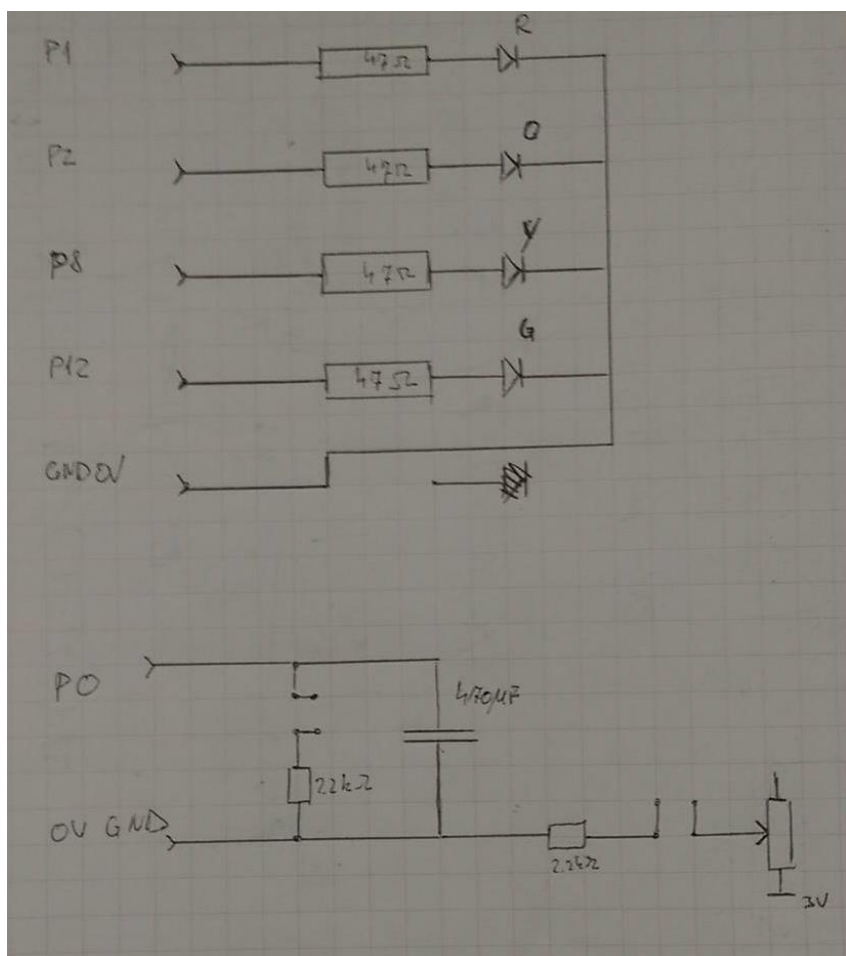 R
P1
47Ω
O
P2
47Ω
Y
P8
47Ω
G
P12
47Ω
GND 0V
P0
470µF
22kΩ
0V GND
2.2kΩ
3V